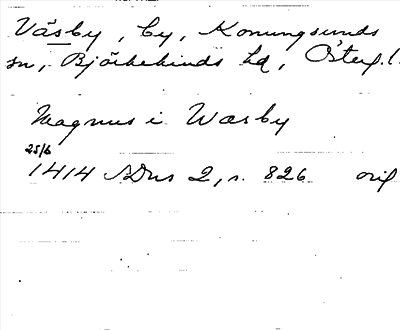 Väsby, by, Konungsunds
sn, Björkekinds hd, Österg.l.
Magnus i Wasby
25/6
1414 SDns 2, s. 826 orig